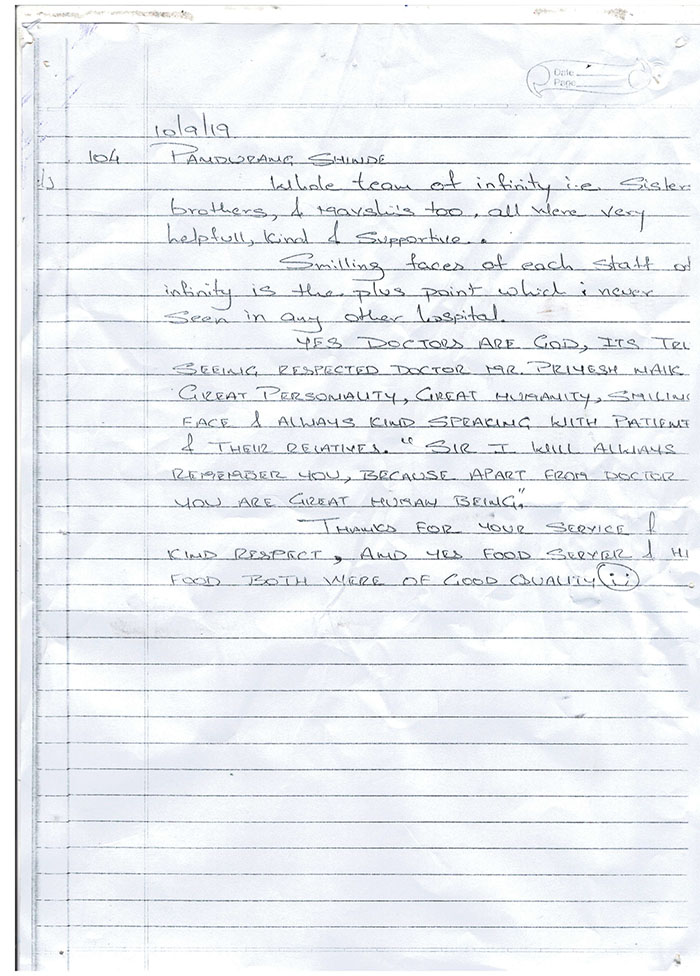 Date
Page
10/9/19
104 PANDURANG SHINDE
Whole team of infinity i.e. Sister
brothers, & Mavshi's too, all were very
helpfull, kind & Supportive.
Smilling faces of each staff of
infinity is the plus point which i never
seen in any other hospital.
YES DOCTORS ARE GOD, ITS TRU
SEEING RESPECTED DOCTOR MR. PRIYESH NAIK
GREAT PERSONALITY, GREAT HUMANITY, SMILING
FACE & ALWAYS KIND SPEAKING WITH PATIENT
& THEIR RELATIVES. "SIR I WILL ALWAYS
REMEMBER YOU, BECAUSE APART FROM DOCTOR
YOU ARE GREAT HUMAN BEING."
THANKS FOR YOUR SERVICE &
KIND RESPECT, AND YES FOOD SERVER & HI
FOOD BOTH WERE OF GOOD QUALITY